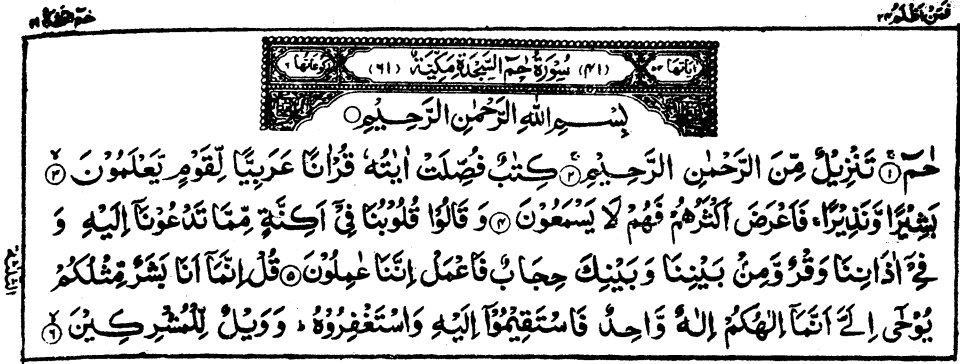 فمن اظلم ٢٤
حٰمٓ السجدة ٤١
اٰیاتها ٥٤ (٤١) سُوْرَةُ حٰمٓ السَّجْدَةِ مَكِّيَّةٌ (٦١) رکوعاتها ٦
بِسْمِ اللهِ الرَّحْمٰنِ الرَّحِيْمِ
حٰمٓ ۝١ تَنْزِيْلٌ مِّنَ الرَّحْمٰنِ الرَّحِيْمِ ۝٢ كِتٰبٌ فُصِّلَتْ اٰيٰتُهٗ قُرْاٰنًا عَرَبِيًّا لِّقَوْمٍ يَّعْلَمُوْنَ ۝٣
بَشِيْرًا وَّنَذِيْرًا ۚ فَاَعْرَضَ اَكْثَرُهُمْ فَهُمْ لَا يَسْمَعُوْنَ ۝٤ وَ قَالُوْا قُلُوْبُنَا فِيْٓ اَكِنَّةٍ مِّمَّا تَدْعُوْنَآ اِلَيْهِ وَ
فِيْٓ اٰذَانِنَا وَقْرٌ وَّمِنْۢ بَيْنِنَا وَبَيْنِكَ حِجَابٌ فَاعْمَلْ اِنَّنَا عٰمِلُوْنَ ۝٥ قُلْ اِنَّمَآ اَنَا بَشَرٌ مِّثْلُكُمْ
يُوْحٰٓى اِلَيَّ اَنَّمَآ اِلٰهُكُمْ اِلٰهٌ وَّاحِدٌ فَاسْتَقِيْمُوْٓا اِلَيْهِ وَاسْتَغْفِرُوْهُ ؕ وَوَيْلٌ لِّلْمُشْرِكِيْنَ ۝٦